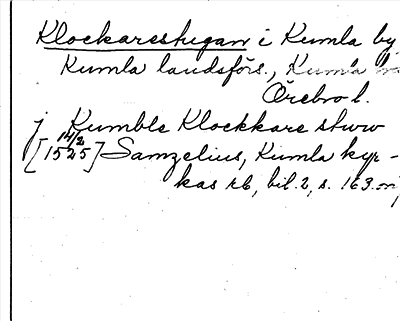 Klockarestugan i Kumla by
Kumla landsförs., Kumla
Örebro l.
j Kumble Klockkare stwW
[14/2 1525] Samzelius, Kumla kyr-
kas rb, bil. 2, s. 163.